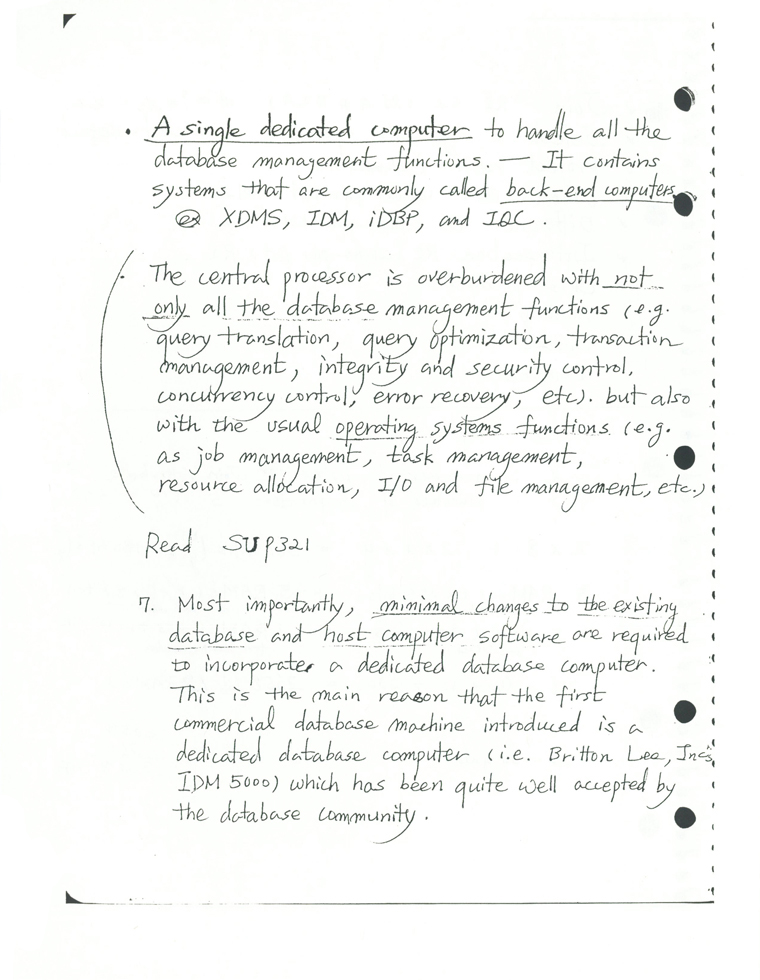 • A single dedicated computer to handle all the
database management functions. — It contains
systems that are commonly called back-end computers
ex XDMS, IDM, iDBP, and IQC.
• The central processor is overburdened with not
only all the database management functions (e.g.
query translation, query optimization, transaction
management, integrity and security control,
concurrency control, error recovery, etc). but also
with the usual operating systems functions (e.g.
as job management, task management,
resource allocation, I/O and file management, etc.)
Read SU p321
7. Most importantly, minimal changes to the existing
database and host computer software are required
to incorporate a dedicated database computer.
This is the main reason that the first
commercial database machine introduced is a
dedicated database computer (i.e. Britton Lee, Inc's
IDM 5000) which has been quite well accepted by
the database community.